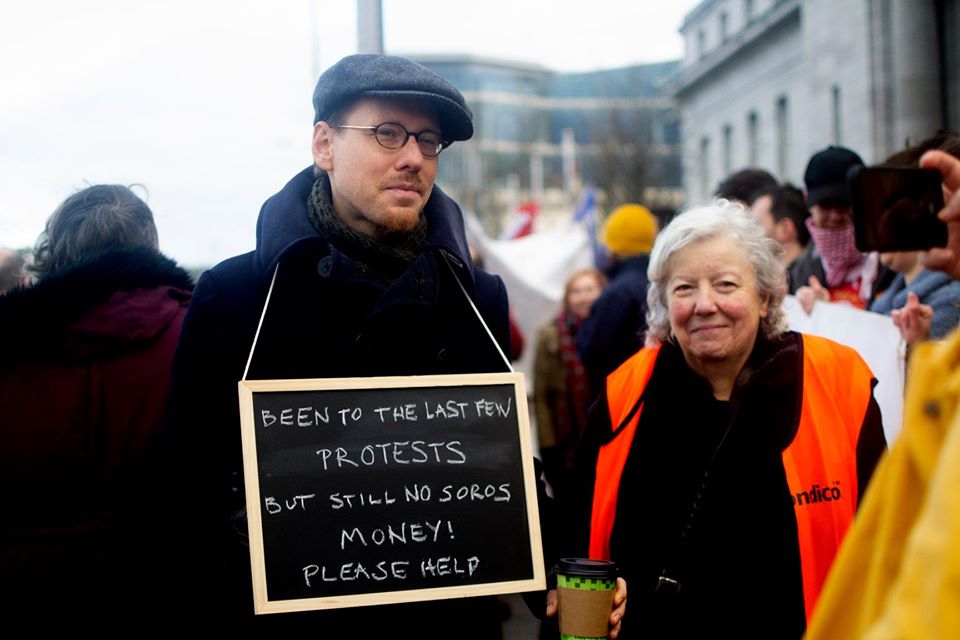 BEEN TO THE LAST FEW
PROTESTS
BUT STILL NO SOROS
MONEY!
PLEASE HELP
ondico™